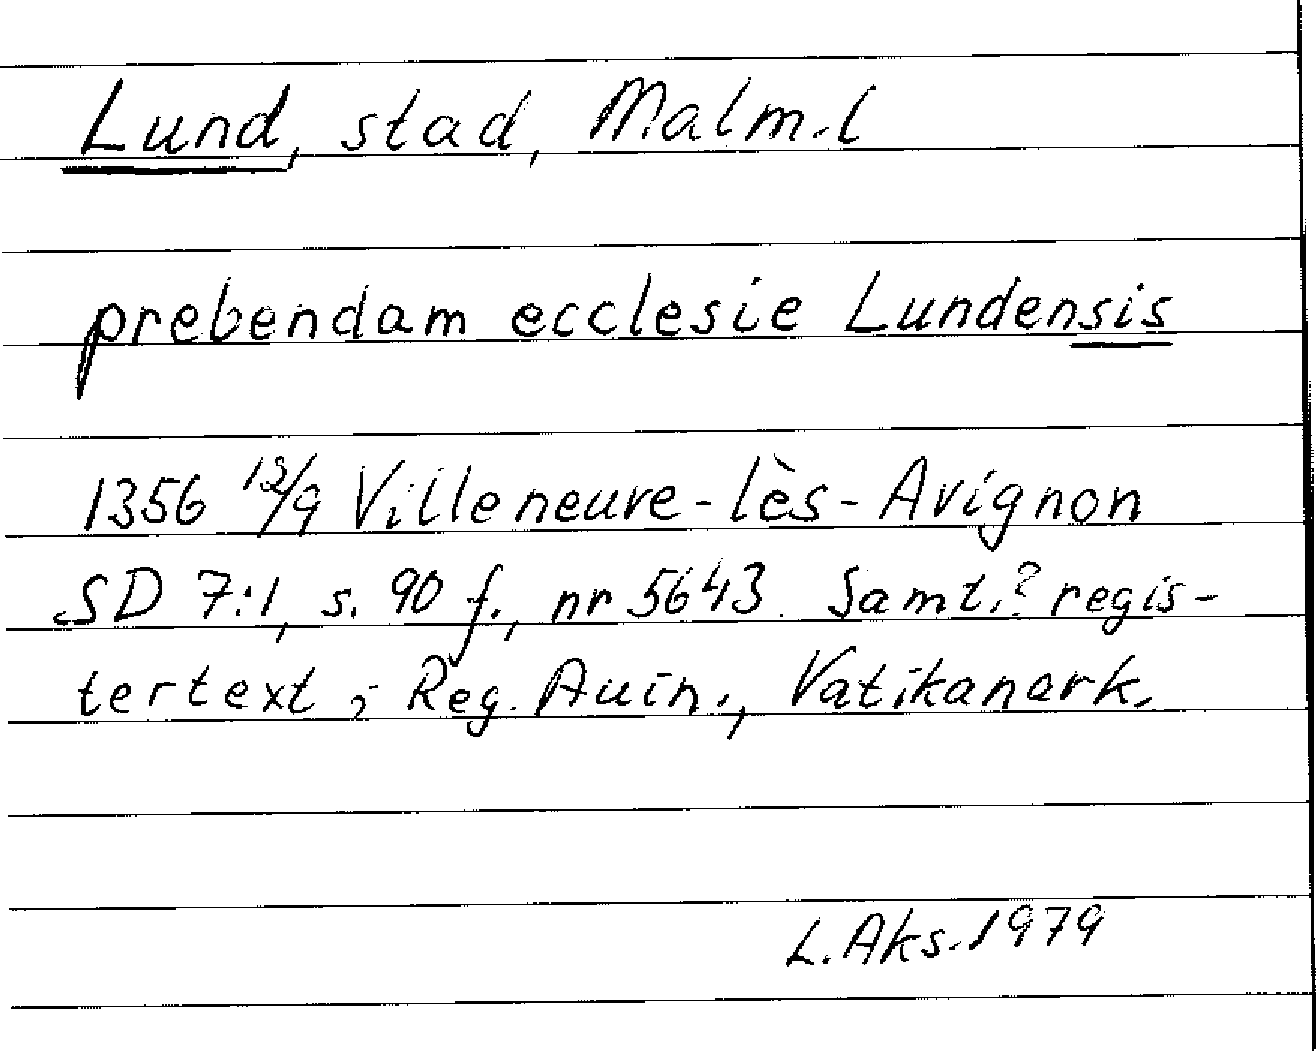 Lund, stad, Malm.l
prebendam ecclesie Lundensis
1356 12/9 Villeneuve-lès-Avignon
SD 7:1, s. 90 f., nr 5643. Samt.? regis-
tertext; Reg. Auin., Vatikanark.
L. Aks. 1979